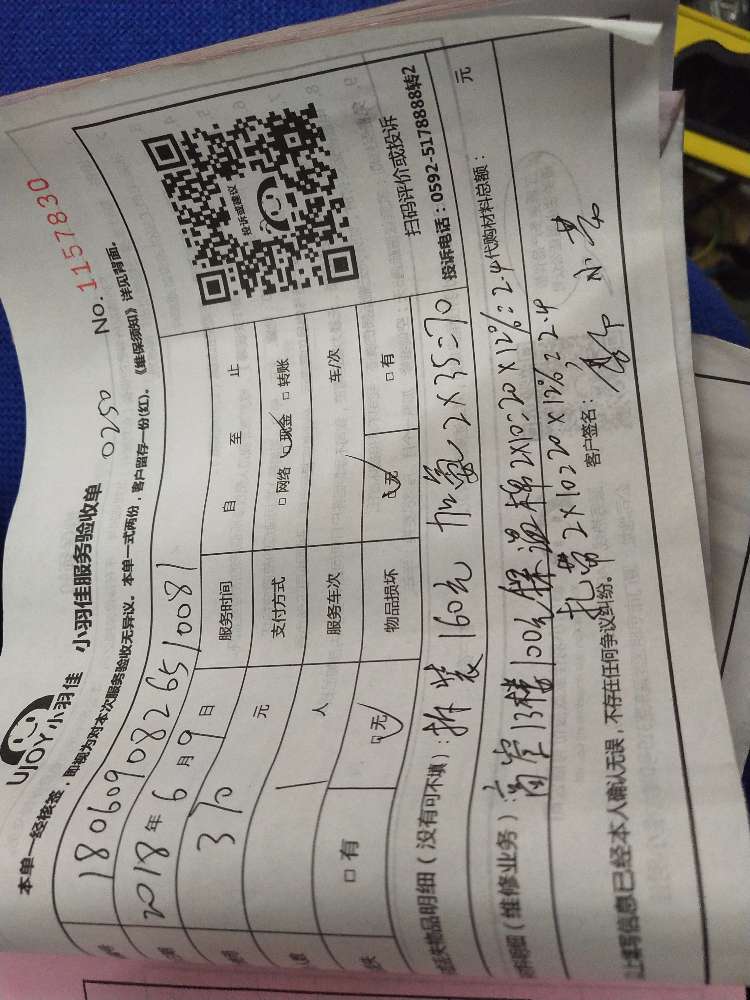 UJOY小羽佳 小羽佳服务验收单 0250 No. 1157830
本单一经核签，即视为对本次服务验收无异议。本单一式两份，客户留存一份(红)。《维保须知》详见背面。
1806090826510081
2018年6月9日 服务时间 自 至 止
310 元 支付方式 □网络 □现金 □转账
1 人 服务车次 车/次
□有 □无 物品损坏 □无 □有
投诉或建议
扫码评价或投诉
投诉电话：0592-5178888转2
物品明细（没有可不填）：拆装160元 加氨2×35=70
（维修业务）：高空13楼100元保温棉2×10=20×12%=2.4代购材料总额： 元
扎带2×10=20×12%=2.4
以上填写信息已经本人确认无误，不存在任何争议纠纷。 客户签名：